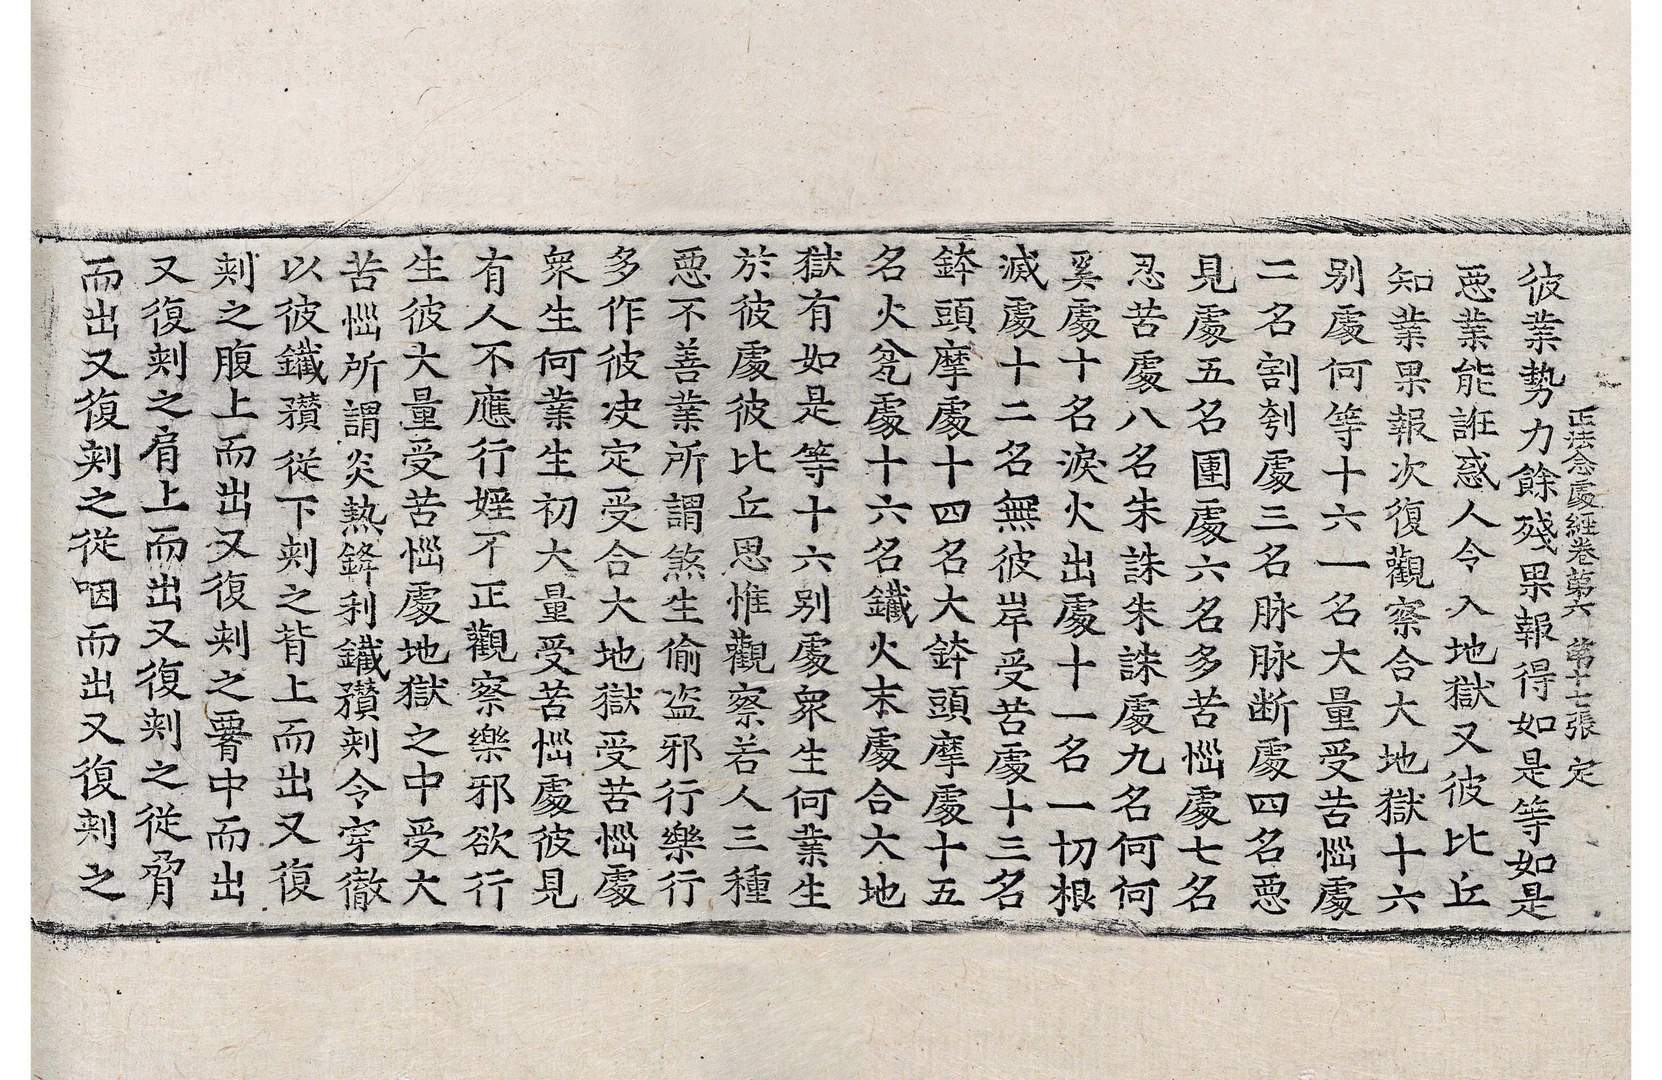 正法念處經卷第六 第十七張 定
彼業勢力餘殘果報得如是等如是
惡業能誑惑人令入地獄又彼比丘
知業果報次復觀察合大地獄十六
別處何等十六一名大量受苦惱處
二名割刳處三名脉脉断處四名惡
見處五名團處六名多苦惱處七名
忍苦處八名朱誅朱誅處九名何何
奚處十名淚火出處十一名一切根
滅處十二名無彼岸受苦處十三名
鉢頭摩處十四名大鉢頭摩處十五
名火盆處十六名鐵火末處合大地
獄有如是等十六別處眾生何業生
於彼處彼比丘思惟觀察若人三種
惡不善業所謂煞生偷盗邪行樂行
多作彼决定受合大地獄受苦惱處
眾生何業生初大量受苦惱處彼見
有人不應行婬不正觀察樂邪欲行
生彼大量受苦惱處地獄之中受大
苦惱所謂炎熱鋒利鐵穳刾令穿徹
以彼鐵穳從下刾之背上而出又復
刾之腹上而出又復刾之䯒中而出
又復刾之肩上而出又復刾之從脅
而出又復刾之從咽而出又復刾之